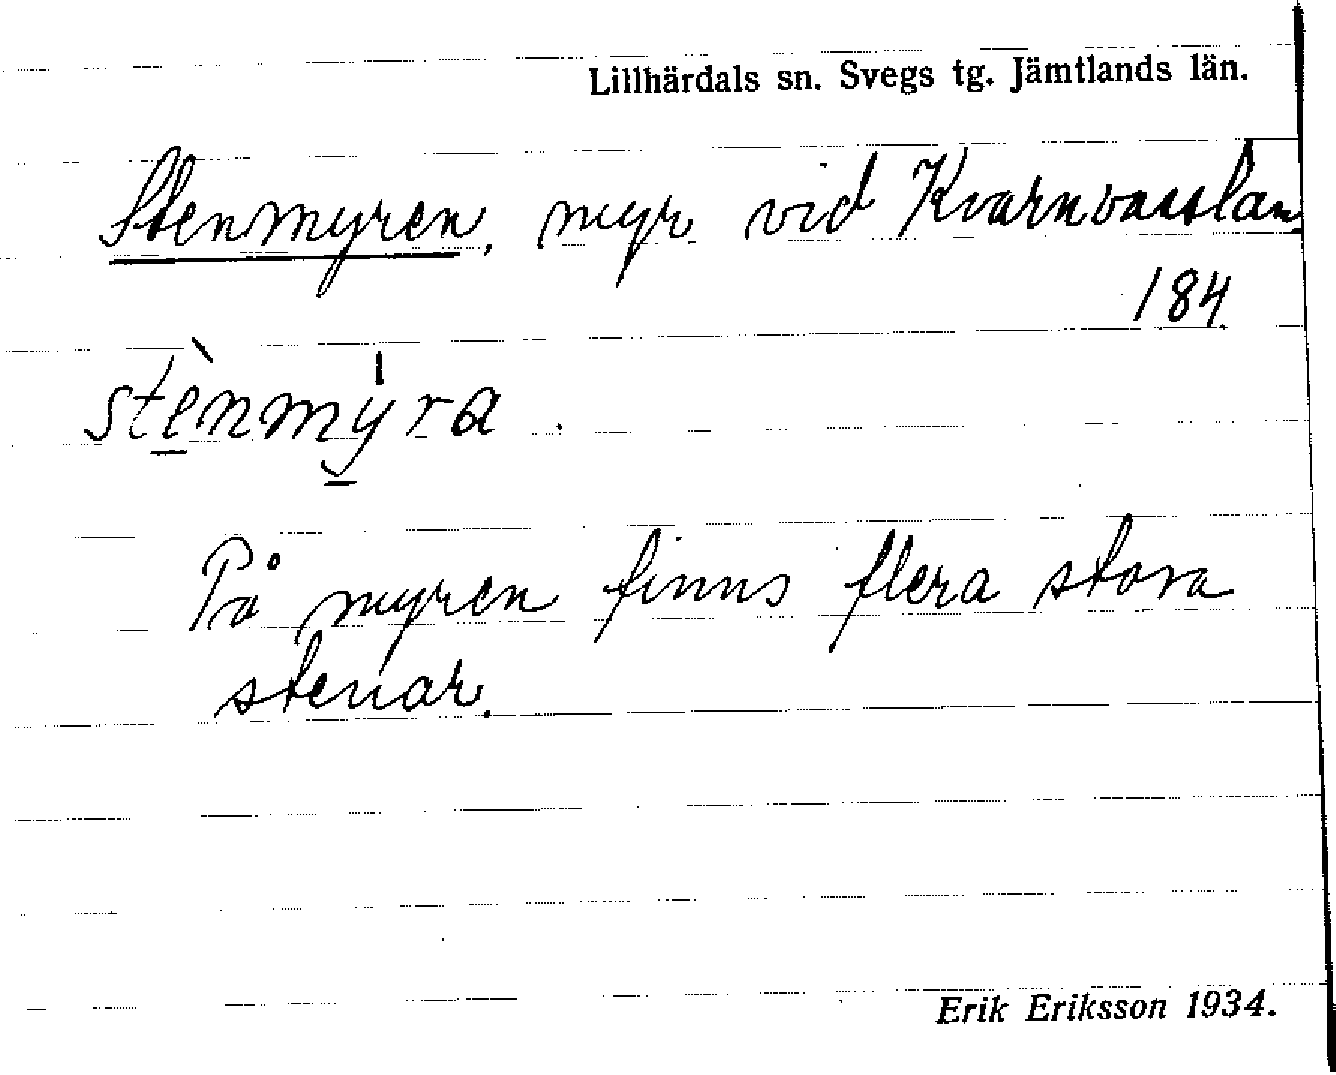 Lillhärdals sn. Svegs tg. Jämtlands län.
Stenmyren, myr vid Kvarnvasslan
184
stènmýra
På myren finns flera stora
stenar.
Erik Eriksson 1934.